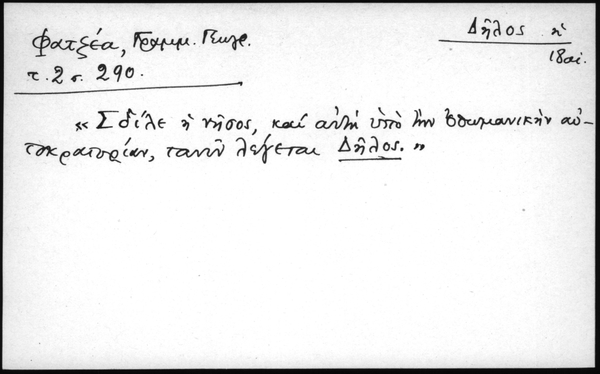 Φατζέα, Γραμμ. Γεωγρ.
τ. 2 σ. 290.
Δῆλος ἡ
18αι.
« Σδίλε ἡ νῆσος, καί αὐτή ὑπὸ τὴν ὀθωμανικὴν αὐ-
τοκρατορίαν, τανῦν λέγεται Δῆλος. »